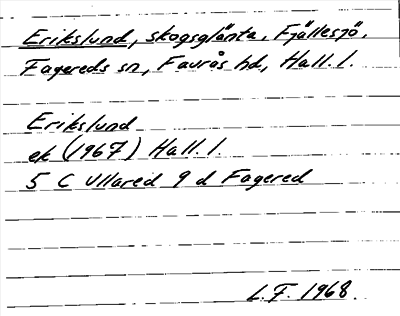 Erikslund, skogsglänta, Fjällesjö,
Fagereds sn, Faurås hd, Hall. l.
Erikslund
ek (1967) Hall. l.
5 C Ullared 9 d Fagered
L. F. 1968.